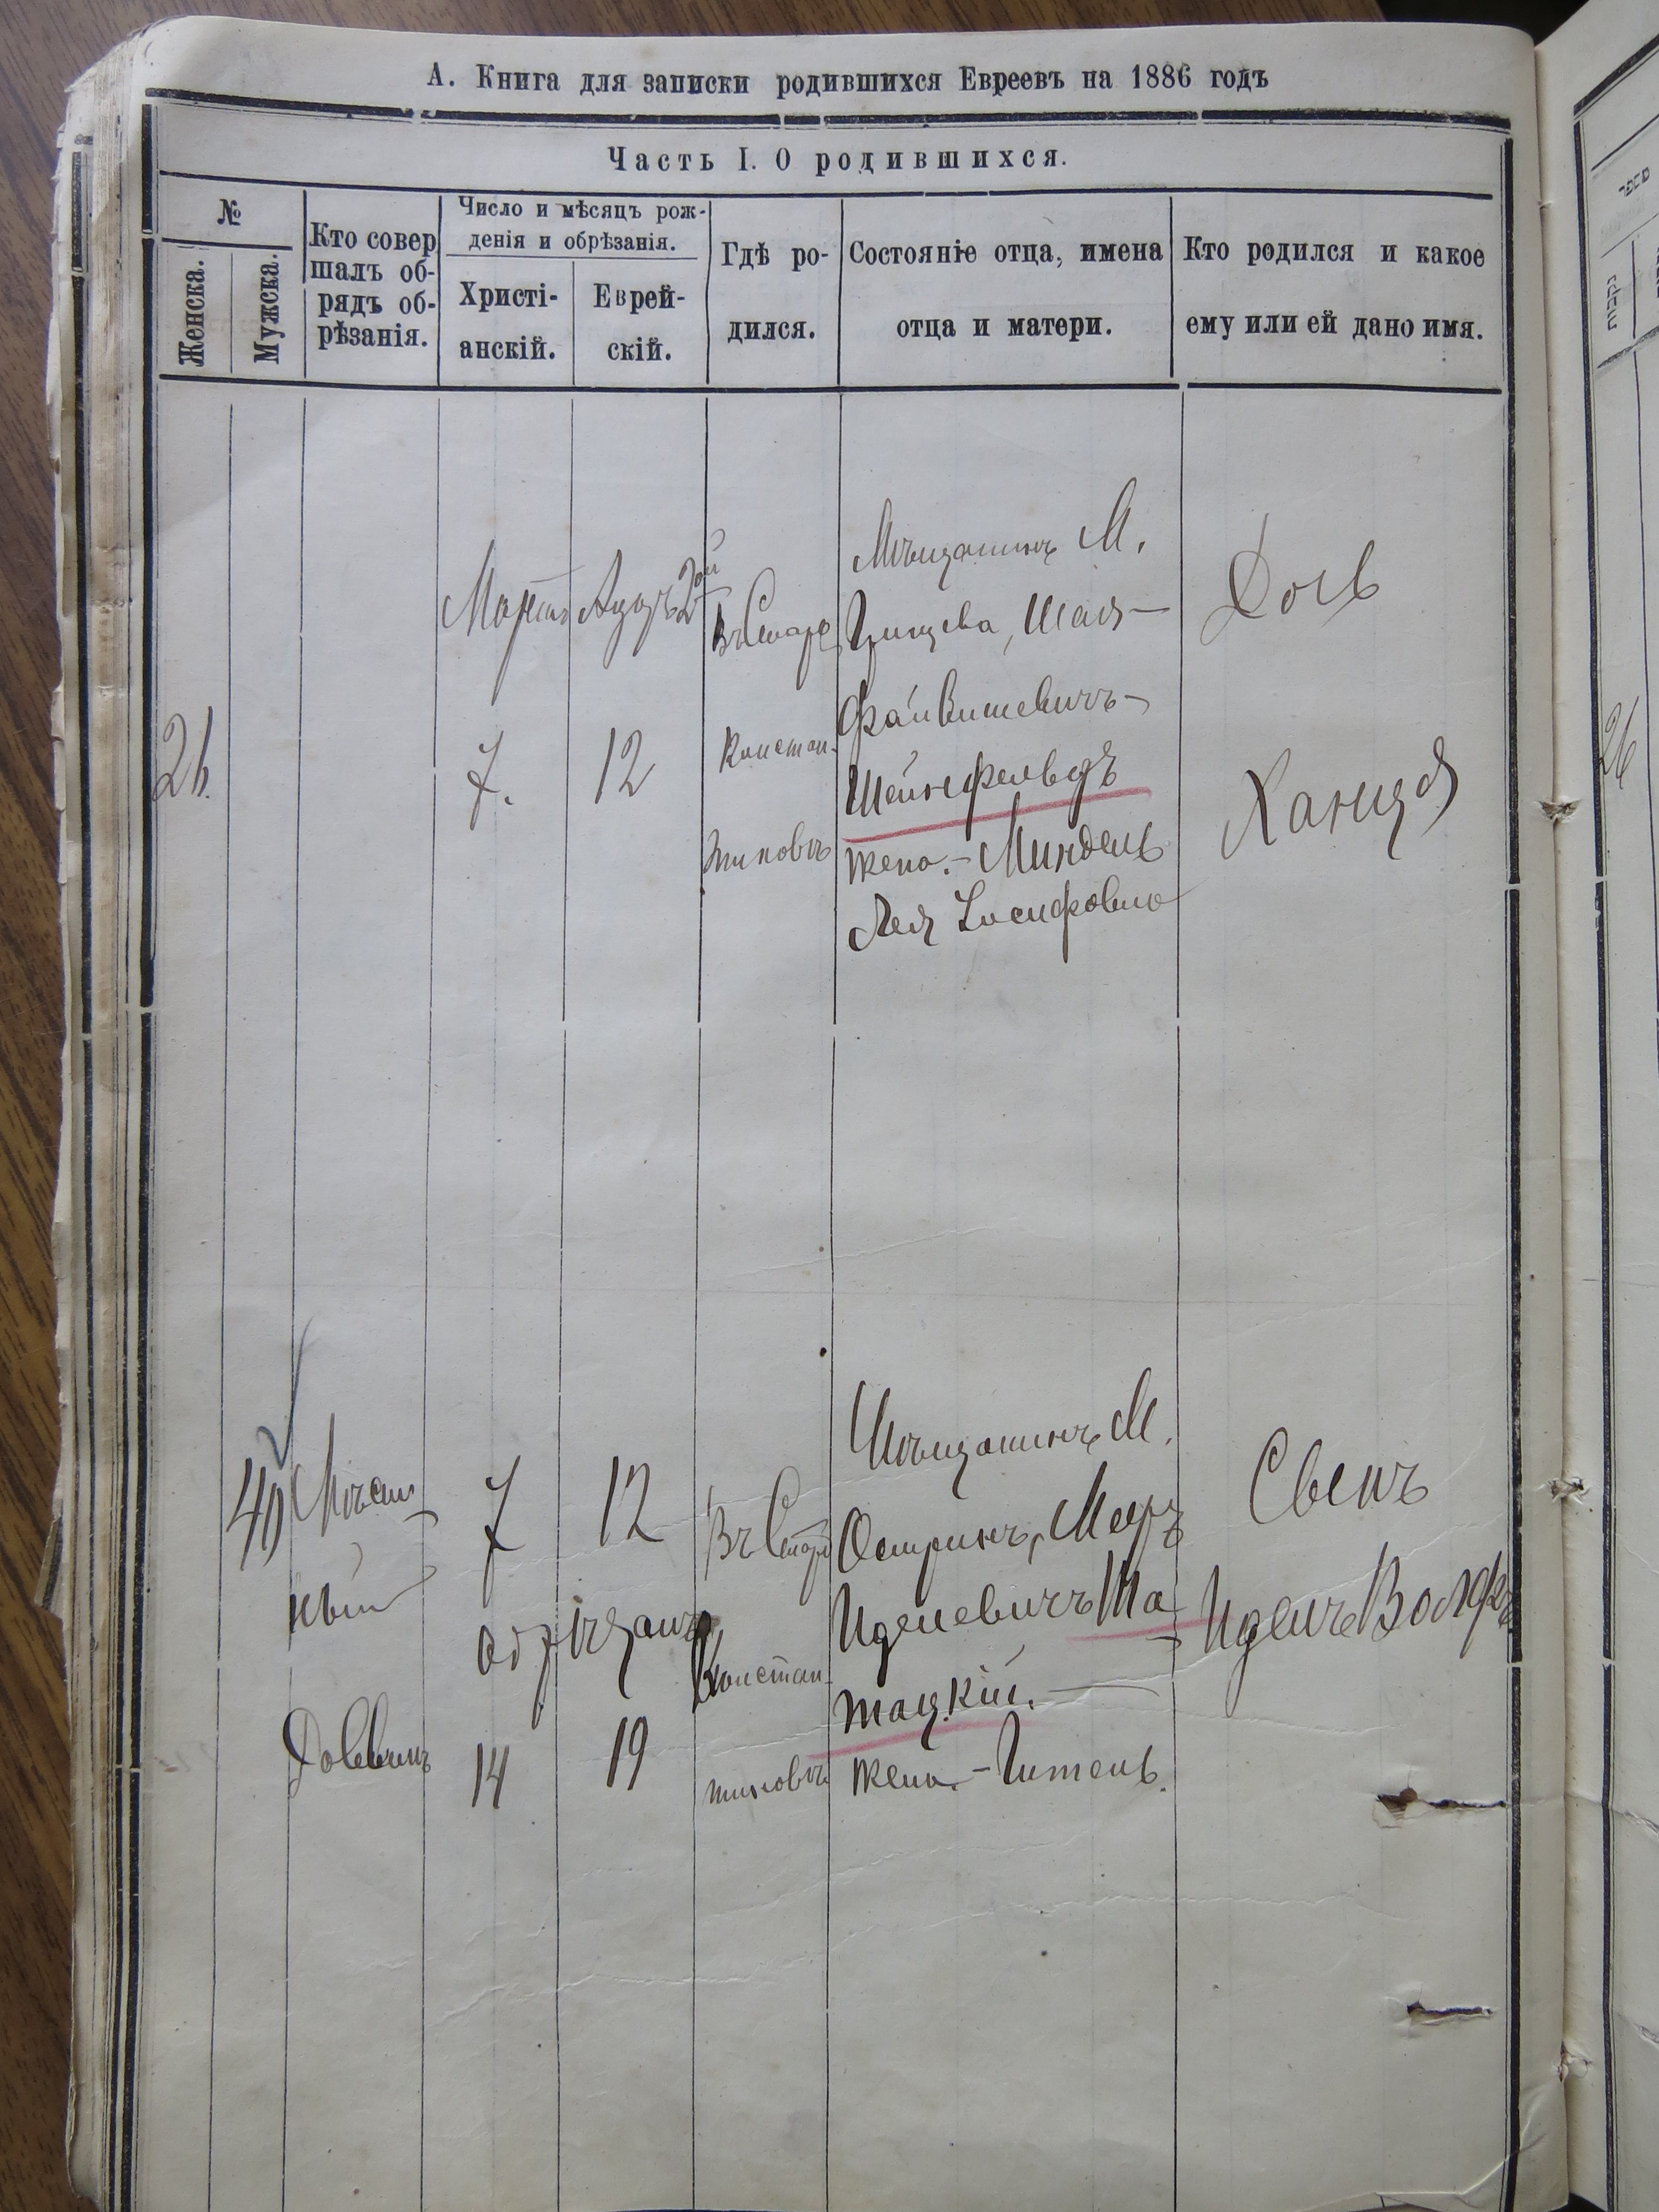 А. Книга для записки родившихся Евреевъ на 1886 годъ
Часть I. О родившихся.
№
Женска.
Мужска.
Кто совер
шалъ об-
рядъ об-
рѣзанія.
Число и мѣсяцъ рож-
денія и обрѣзанія.
Христі-
анскій.
Еврей-
скій.
Гдѣ ро-
дился.
Состояніе отца, имена
отца и матери.
Кто родился и какое
ему или ей дано имя.
26.
Мартъ
7.
Адаръ 2ой
12
Въ Старо
Констан-
тиновѣ
Мѣщанинъ М.
Грицева, Шая
Файвишевичъ
Шейнфельдъ
жена.- Миндель
Лея Іосифовна
Дочь
Ханця
40
Мѣст
ный
Доввинъ
7
обрѣзанъ
14
12
19
Въ Старо
Констан-
тиновѣ
Мѣщанинъ М.
Остринъ, Мееръ
Иделевичъ Ша
тацкій.
жена.- Гитель.
Сынъ
Идель Волфъ
26